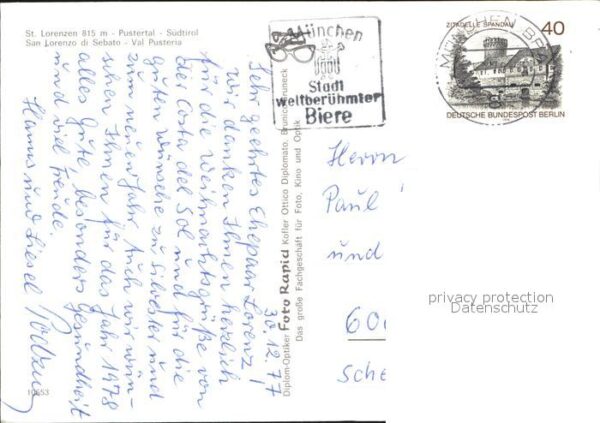 St. Lorenzen 815 m - Pustertal - Südtirol
San Lorenzo di Sebato - Val Pusteria
30.12.77
Sehr geehrtes Ehepaar Lorenz!
Wir danken Ihnen herzlich
für die Weihnachtsgrüße von
der Costa del Sol und für die
guten Wünsche zu Silvester und
zum neuen Jahr. Auch wir wün-
schen Ihnen für das Jahr 1978
alles Gute, besonders Gesundheit
und viel Freude.
Hanns und Liesel
10653
Diplom-Optiker Foto Rapid Kofler Ottico Diplomato, Brunico Bruneck
Das große Fachgeschäft für Foto, Kino und Optik
München
Stadt
weltberühmter
Biere
ZITADELLE SPANDAU 40
DEUTSCHE BUNDESPOST BERLIN
MÜNCHEN
Herrn
Paul
und
60
Sche
privacy protection
Datenschutz